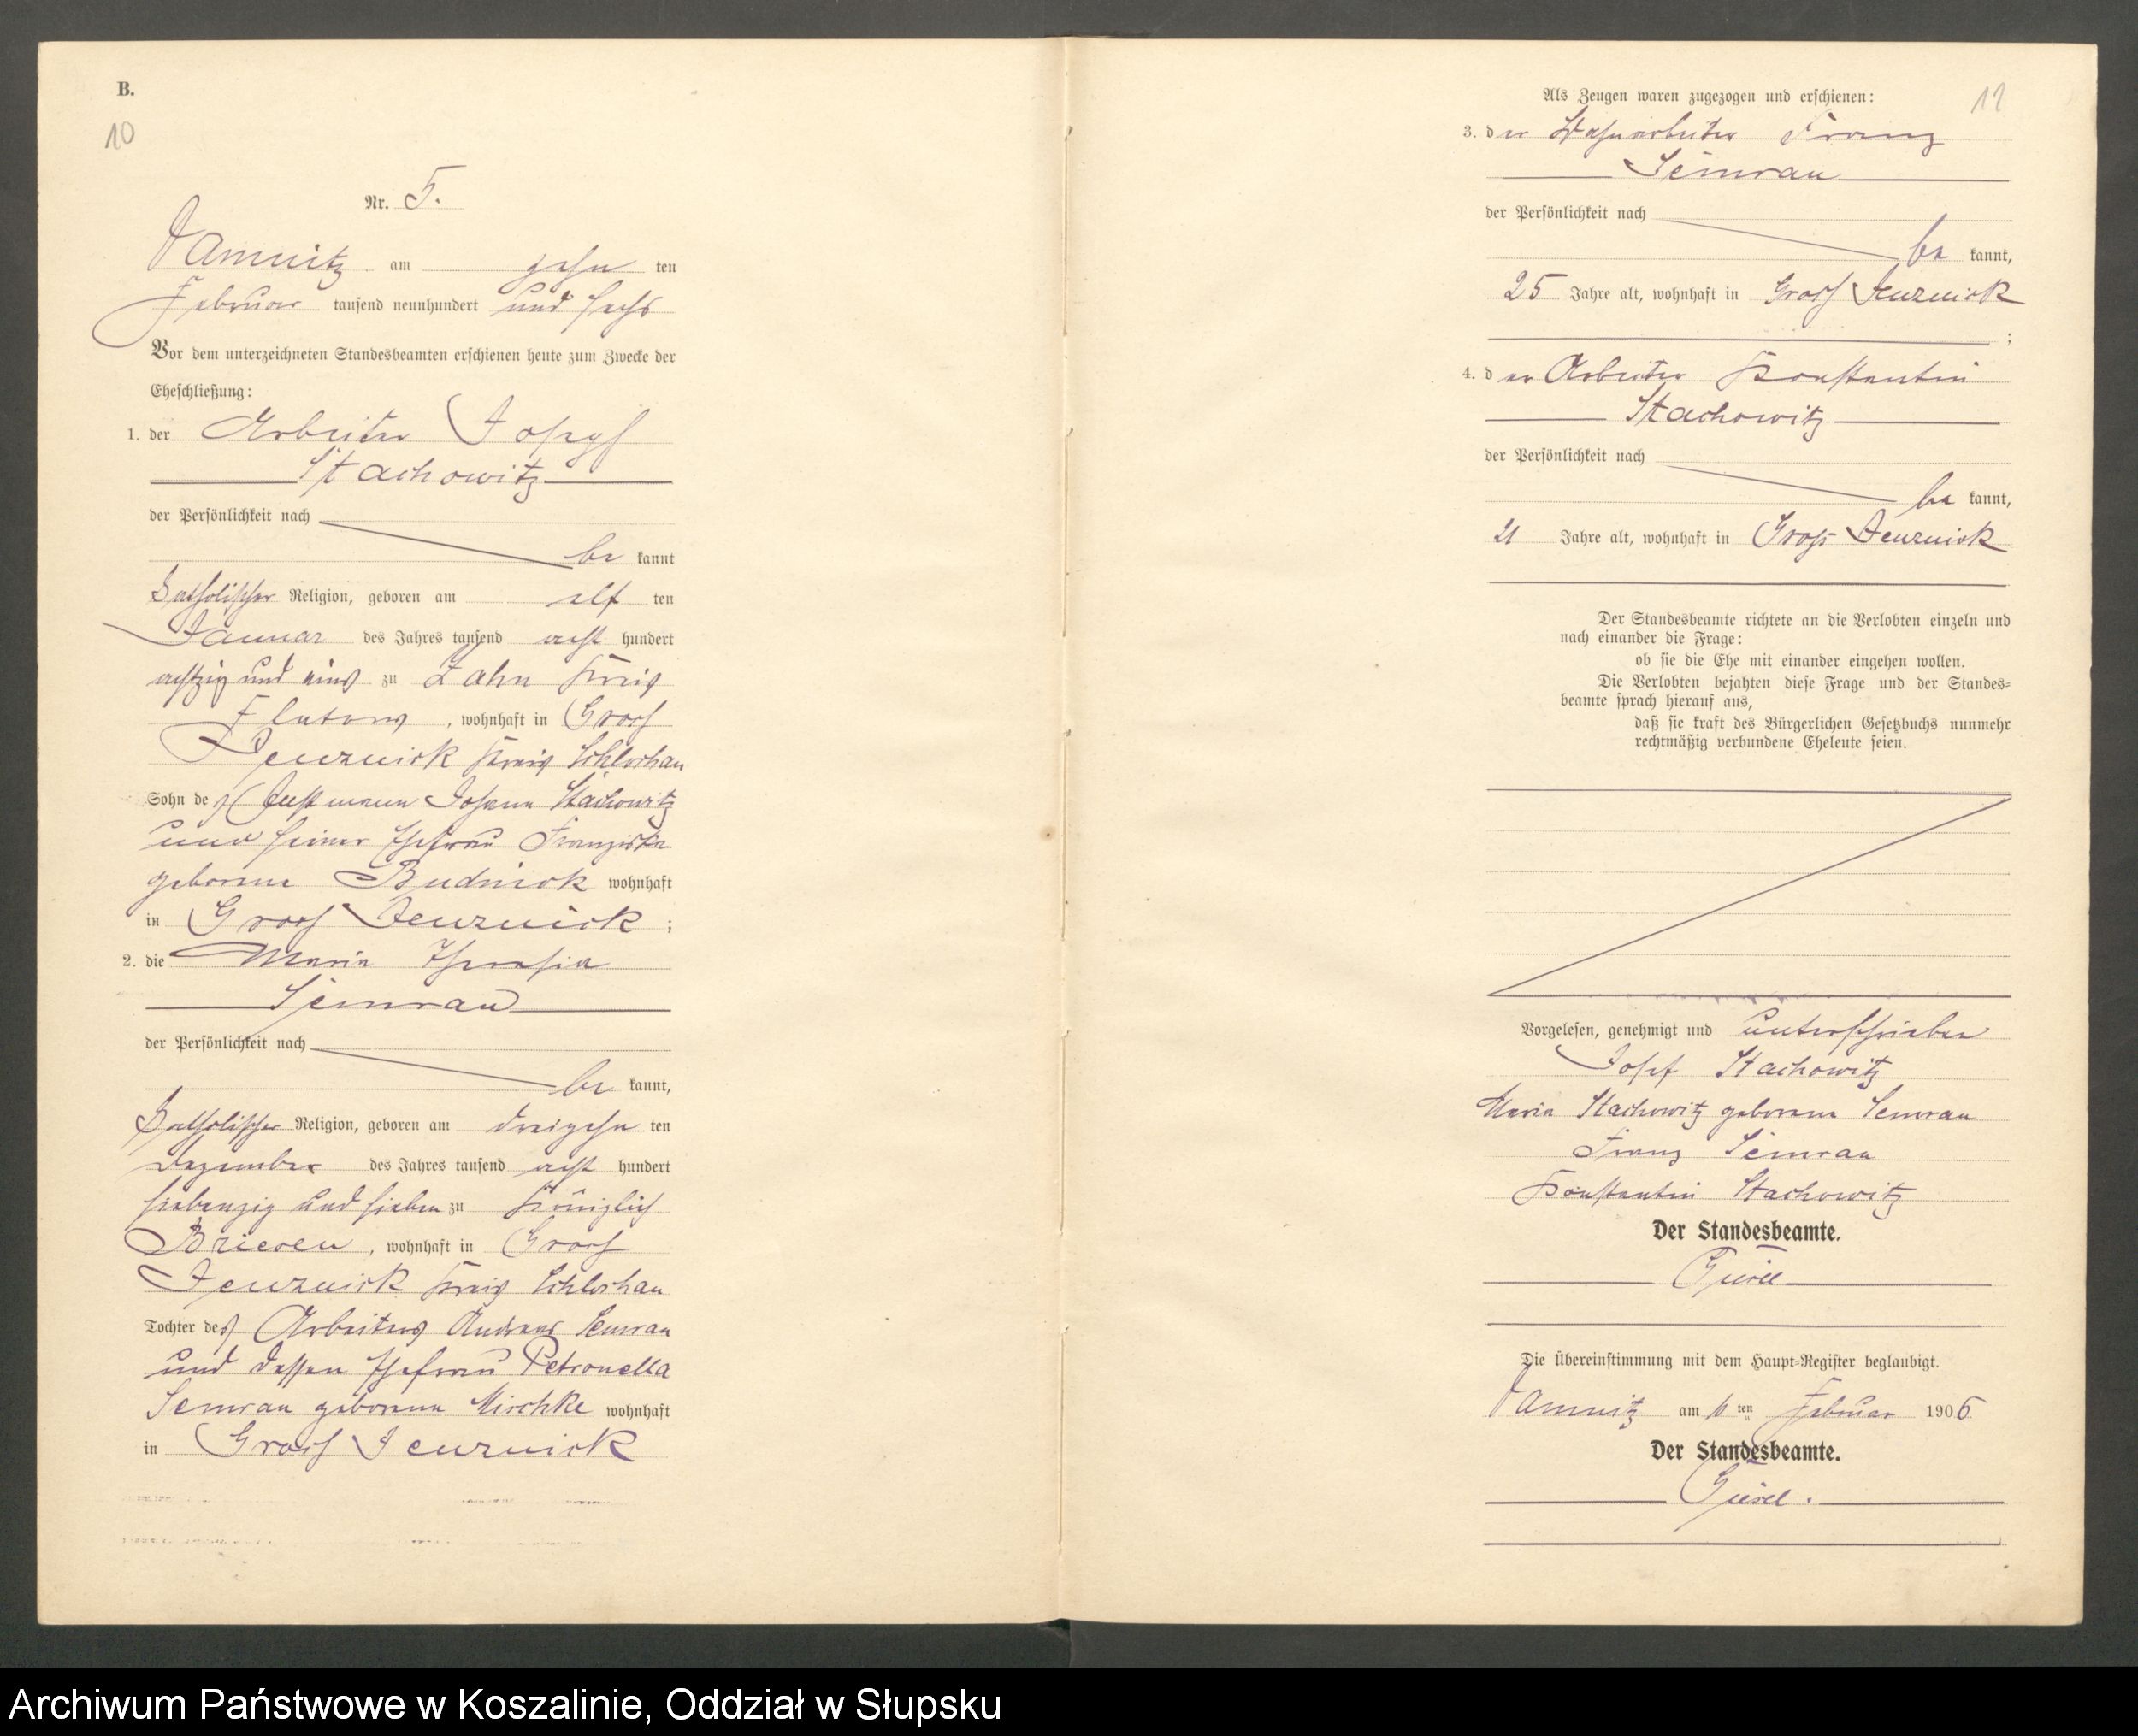 B.
10
Nr. 5.
Damnitz am zehn ten
Februar tausend neunhundert und sechs
Vor dem unterzeichneten Standesbeamten erschienen heute zum Zwecke der
Eheschließung:
1. der Arbeiter Joseph
Stachowitz
der Persönlichkeit nach
be kannt
katholischer Religion, geboren am elf ten
Januar des Jahres tausend acht hundert
achtzig und eins zu Zahn Kreis
Flatow, wohnhaft in Gross
Jenznick Kreis Schlochau
Sohn des Johann Stachowitz
und seiner Ehefrau Franziska
geborene Budnick wohnhaft
in Gross Jenznick;
2. die Maria Theresia
Semrau
der Persönlichkeit nach
be kannt,
katholischer Religion, geboren am dreizehn ten
Dezember des Jahres tausend acht hundert
siebenzig und sieben zu Königlich
Briesen, wohnhaft in Gross
Jenznick Kreis Schlochau
Tochter des Arbeiters Andreas Semrau
und dessen Ehefrau Petronella
Semrau geborene Mischke wohnhaft
in Gross Jenznick
Als Zeugen waren zugezogen und erschienen:
3. der Bahnarbeiter Franz
Semrau
der Persönlichkeit nach
be kannt,
25 Jahre alt, wohnhaft in Gross Jenznick
;
4. der Arbeiter Konstantin
Stachowitz
der Persönlichkeit nach
be kannt,
21 Jahre alt, wohnhaft in Gross Jenznick
Der Standesbeamte richtete an die Verlobten einzeln und
nach einander die Frage:
ob sie die Ehe mit einander eingehen wollen.
Die Verlobten bejahten diese Frage und der Standes=
beamte sprach hierauf aus,
daß sie kraft des Bürgerlichen Gesetzbuchs nunmehr
rechtmäßig verbundene Eheleute seien.
Vorgelesen, genehmigt und unterschrieben
Josef Stachowitz
Maria Stachowitz geborene Semrau
Franz Semrau
Konstantin Stachowitz
Der Standesbeamte.
Die Übereinstimmung mit dem Haupt=Register beglaubigt.
Damnitz am 10 ten Februar 1906
Der Standesbeamte.
Archiwum Państwowe w Koszalinie, Oddział w Słupsku